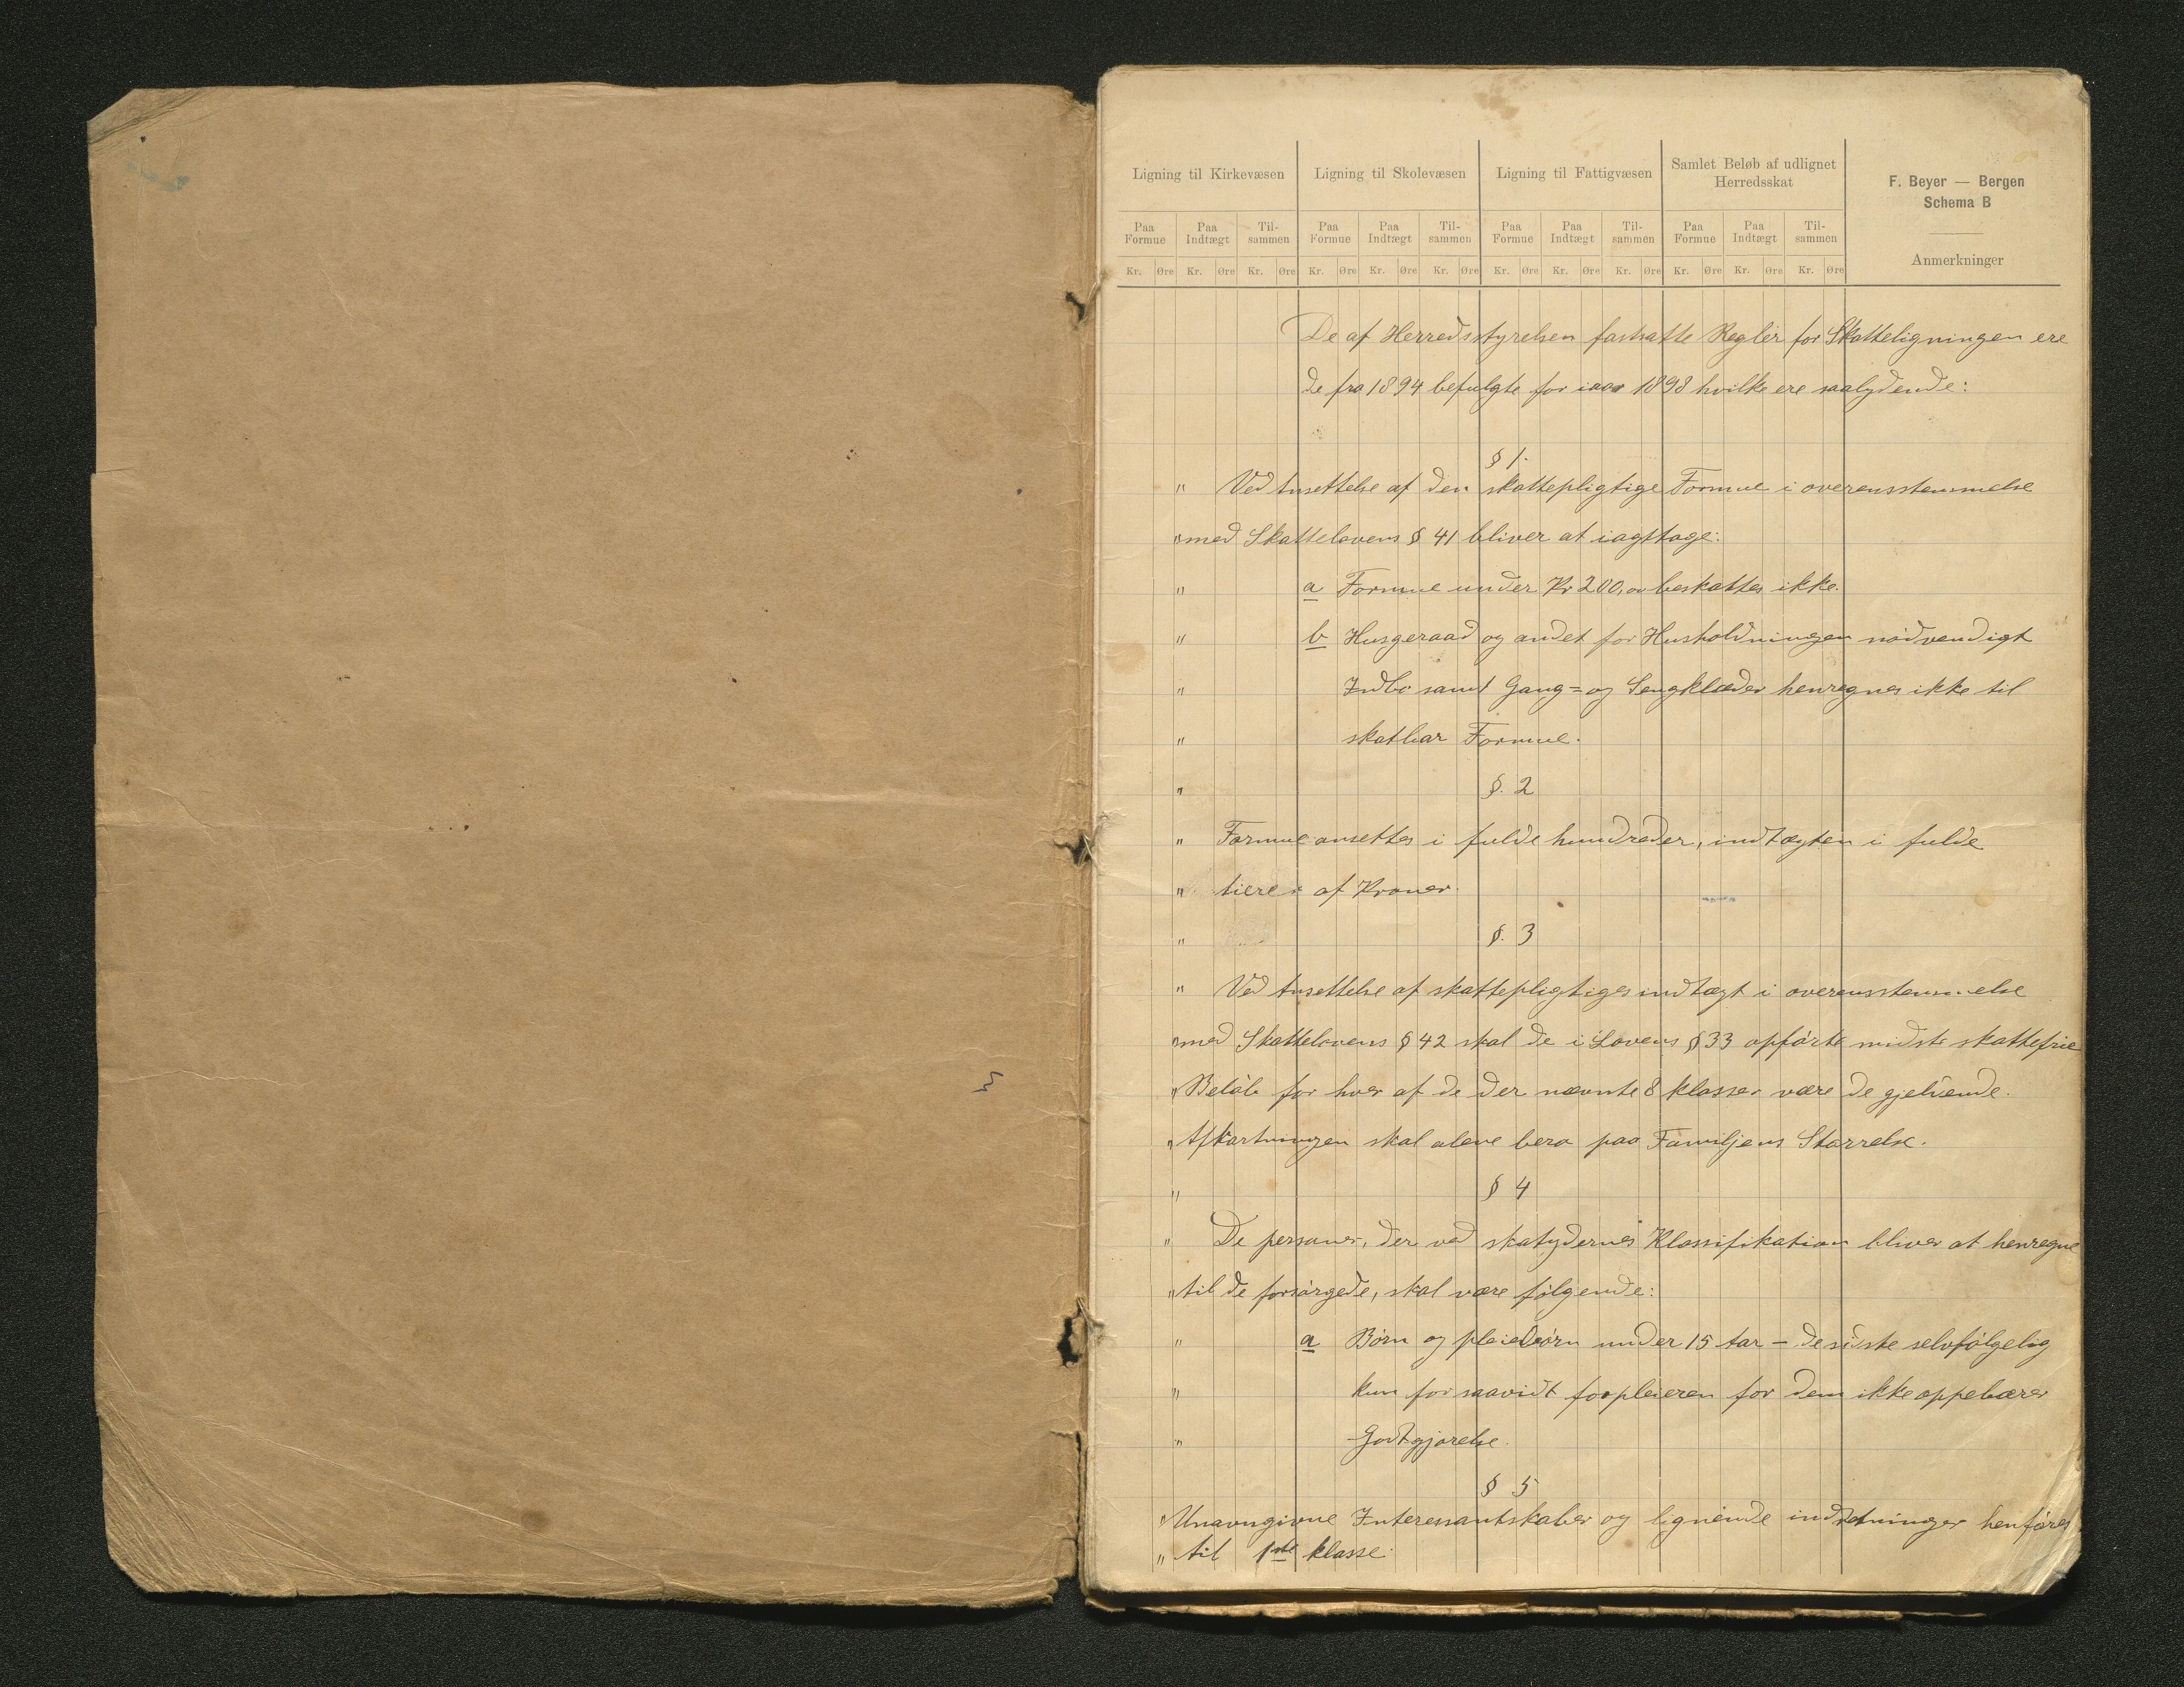 Ligning til Kirkevæsen Ligning til Skolevæsen Ligning til Fattigvæsen Samlet Beløb af udlignet Herredsskat
F. Beyer — Bergen
Schema B
Paa Formue Paa Indtægt Tilsammen Paa Formue Paa Indtægt Tilsammen Paa Formue Paa Indtægt Tilsammen Paa Formue Paa Indtægt Tilsammen
Anmerkninger
Kr. Øre Kr. Øre Kr. Øre Kr. Øre Kr. Øre Kr. Øre Kr. Øre Kr. Øre Kr. Øre Kr. Øre Kr. Øre Kr. Øre
De af Herredsstyrelsen fastsatte Regler for Skatteligningen ere
de fra 1894 befulgte for iaar 1898 hvilke ere saalydende:
§ 1.
" Ved Ansettelse af den skattepligtige Formue i overensstemmelse
" med Skattelovens § 41 bliver at iagttage:
" a Formue under Kr 200,00 beskattes ikke.
" b Husgeraad og andet for Husholdningen nødvendigt
" Indbo samt Gang= og Sengklæder henregnes ikke til
" skatbar Formue.
" §. 2
" Formue ansettes i fulde hundreder, indtægten i fulde
" tiere af Kroner.
" §. 3
" Ved Ansettelse af skattepligtiges indtægt i overensstemmelse
" med Skattelovens § 42 skal de i Lovens § 33 opførte midste skattefrie
" Beløb for hver af de der nævnte 8 klasser være de gjeldende.
" Afkortningen skal alene bero paa Familjens Størrelse.
" § 4
" De personer, der ved skatydernes Klassifikation bliver at henregne
" til de forsørgede, skal være følgende:
" a Børn og pleiebørn under 15 Aar – de sidste selvfølgelig
" kun for saavidt forpleieren for dem ikke oppebærer
" Godtgjørelse.
§ 5
" Unavngivne Interessantskaber og lignende indretninger henføres
" til 1ste klasse.